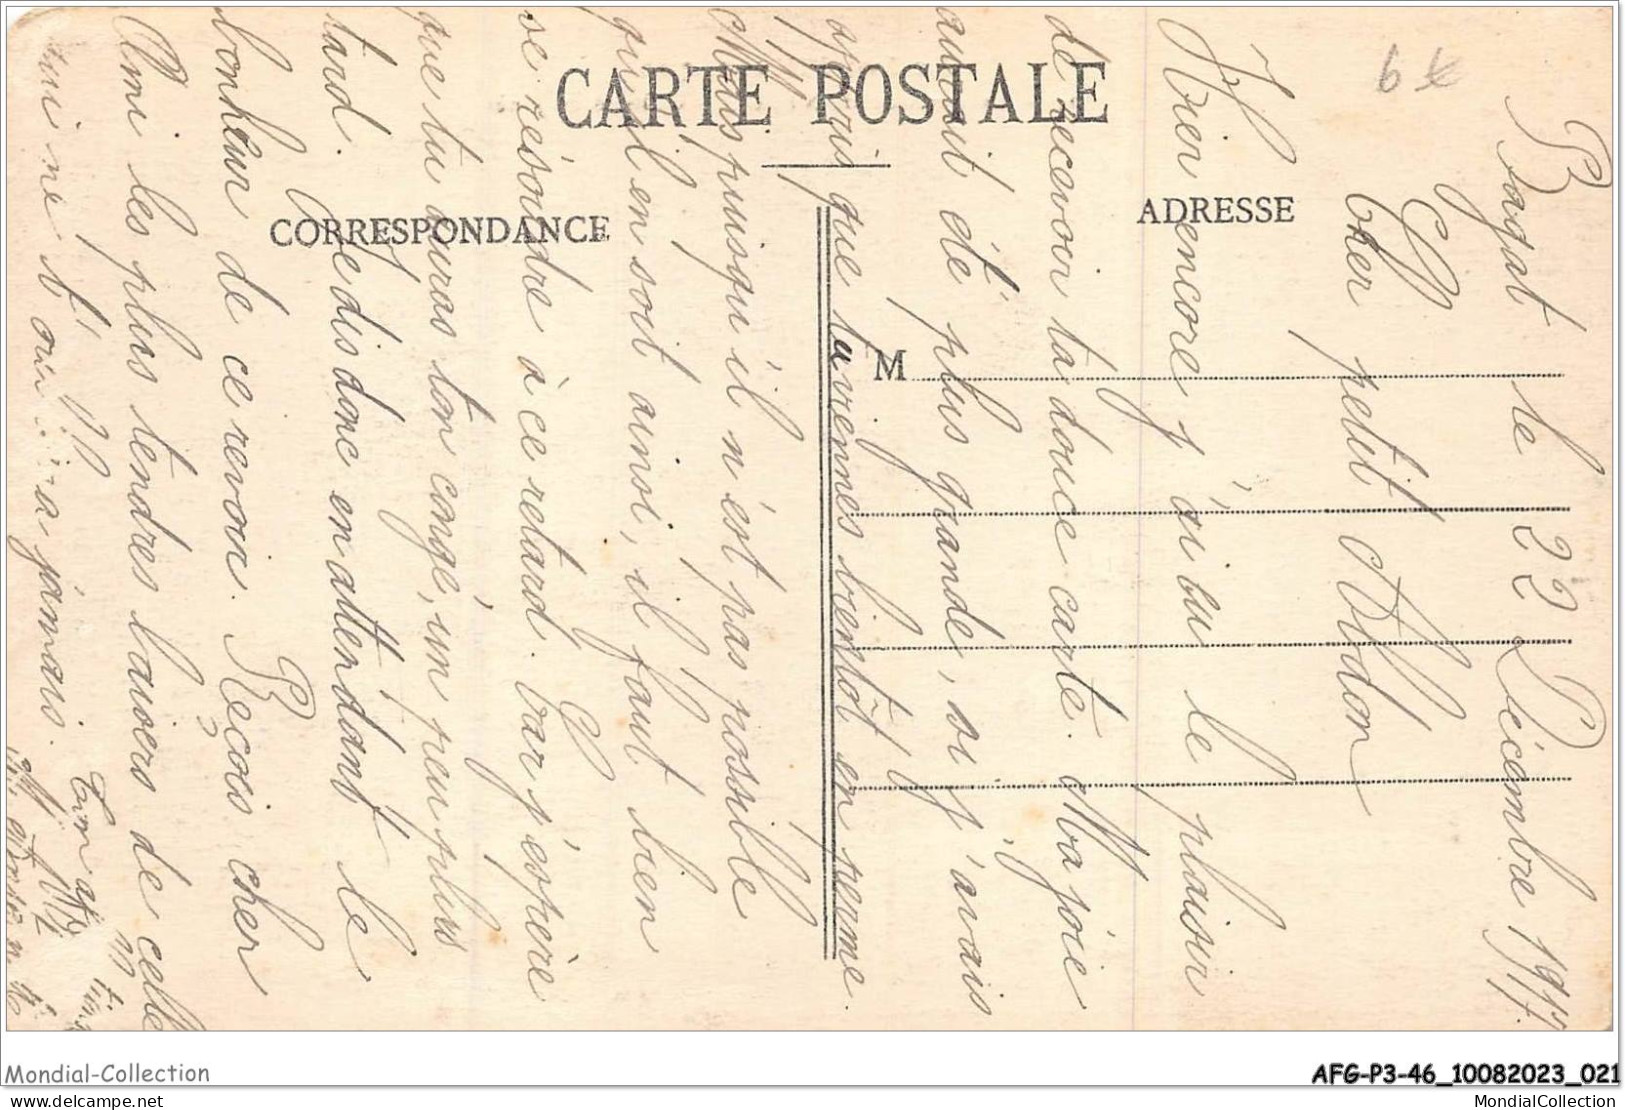 CARTE POSTALE
CORRESPONDANCE
ADRESSE
M
6 €
Bagat le 22 Décembre 1917.
Cher petit Abdon
Hier encore j'ai eu le plaisir
de recevoir ta douce carte. Ma joie
aurait été plus grande, si j'avais
appris que tu viennes bientôt en perme.
Mais puisqu'il n'est pas possible
qu'il en soit ainsi, il faut bien
se résoudre à ce retard. Car j'espère
que tu auras ton congé, un peu plus
tard. Je dis donc en attendant le
bonheur de ce revoir. Reçois cher
Ami les plus tendres baisers de celle
qui ne t'oubliera jamais.
Ton
Mondial-Collection
AFG-P3-46_10082023_021
delcampe.net
MondialCollection